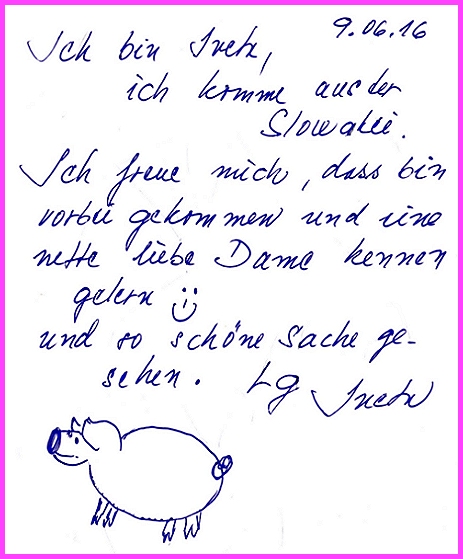 9.06.16
Ich bin Iveta,
ich komme aus der
Slowakei.
Ich freue mich, dass bin
vorbei gekommen und eine
nette liebe Dame kennen
gelern :)
und so schöne Sache ge-
sehen. LG Iveta